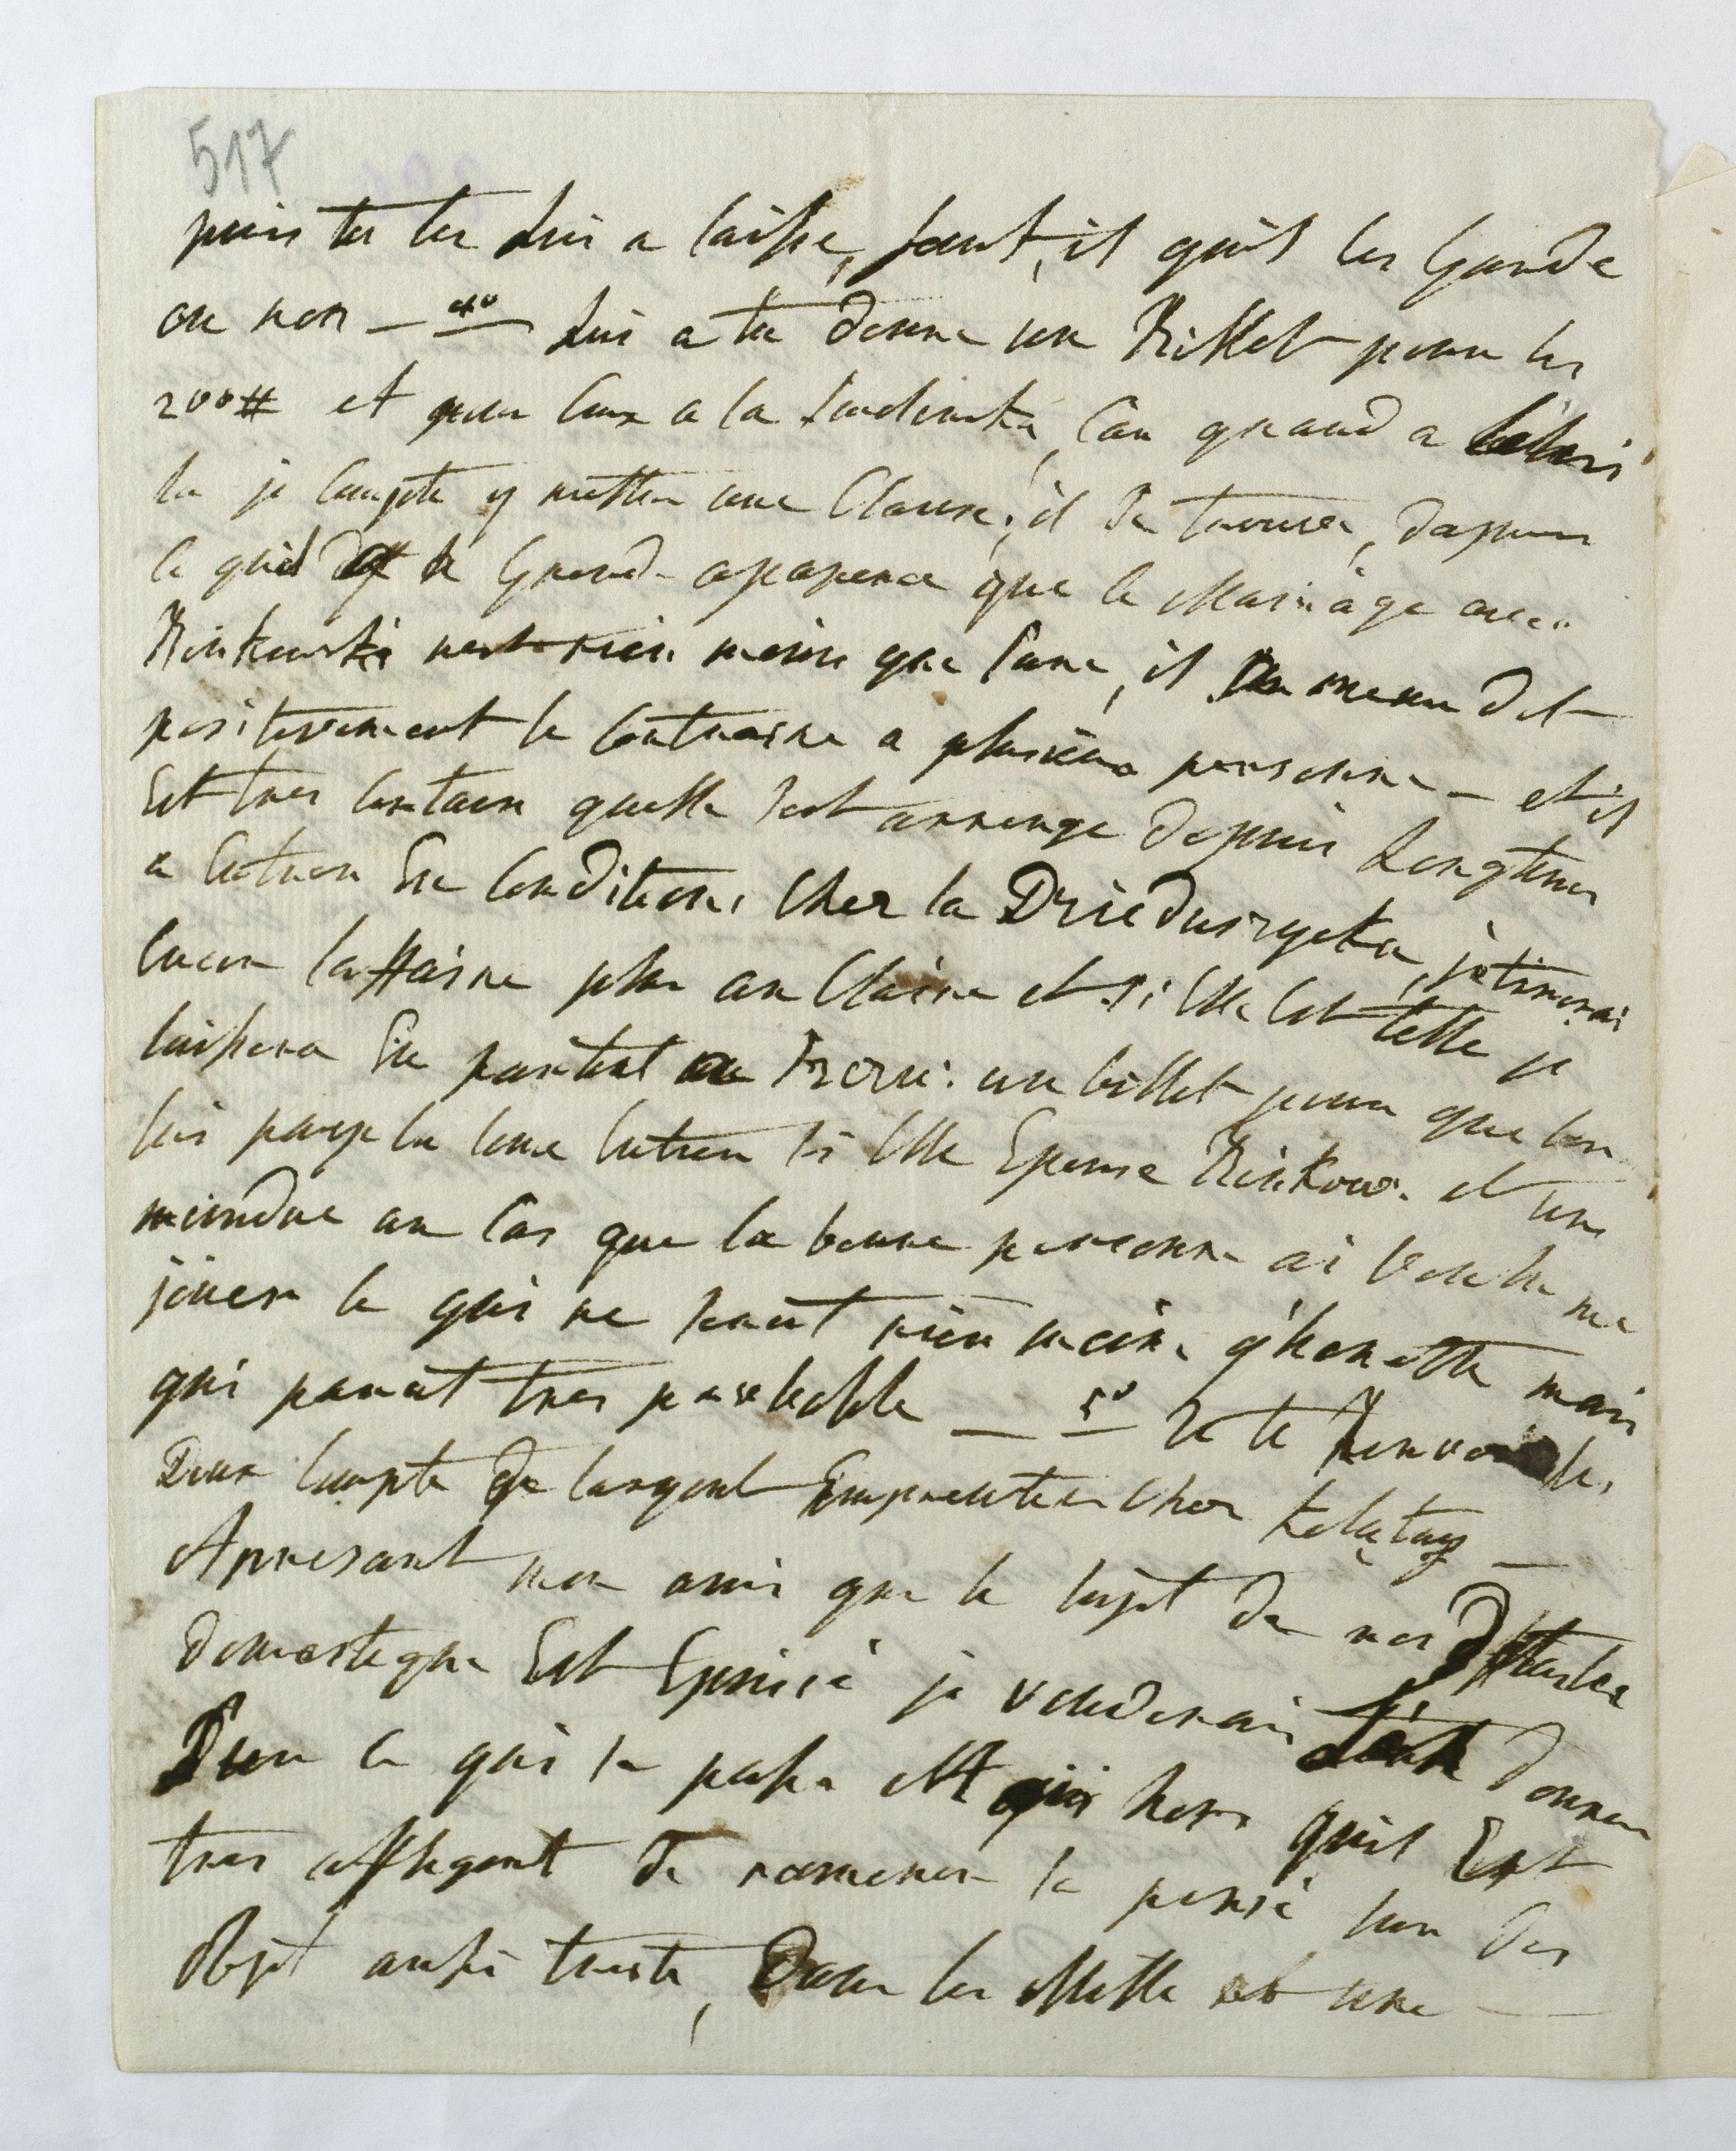 517
puis tu les lui a laisse, faut, il quil les Garde
ou non — 4° lui a tu donne un Billet pour les
200# et pour ceux a la Car quand a
la je compte y mettre une Clause, il se trouve, dapres
ce quil de Grande apaparence que le Mariage avec
Binkowski nest rien moins que sure, il meme dit
positivement le contraire a plusieur personne — et il
Est tres certain quelle sest arrenge depuis Longtems
a entrer En Conditions Chez la Dzieduszycka, je tirerai
encor laffaire plus au Claire et si Elle Est telle je
laissera En partent a un billet pour que lon
lui paye la some entier si Elle Epouse Binkow. et une
moindre au Cas que la bonne personne ai voulu me
jouer ce qui ne serait rien moin q'honette mais
qui parait tres probable — 5° Je te Renvoi les
Deux Compte de largent Emprunter Chez
Apresant mon ami que le sujet de nos
domestique Est Epuisé je vouderai donner
Sur ce qui se passe hors quil Est
tres affligent de ramener sa pensé sur des
Objet aussi triste, Dans les Mille et une —